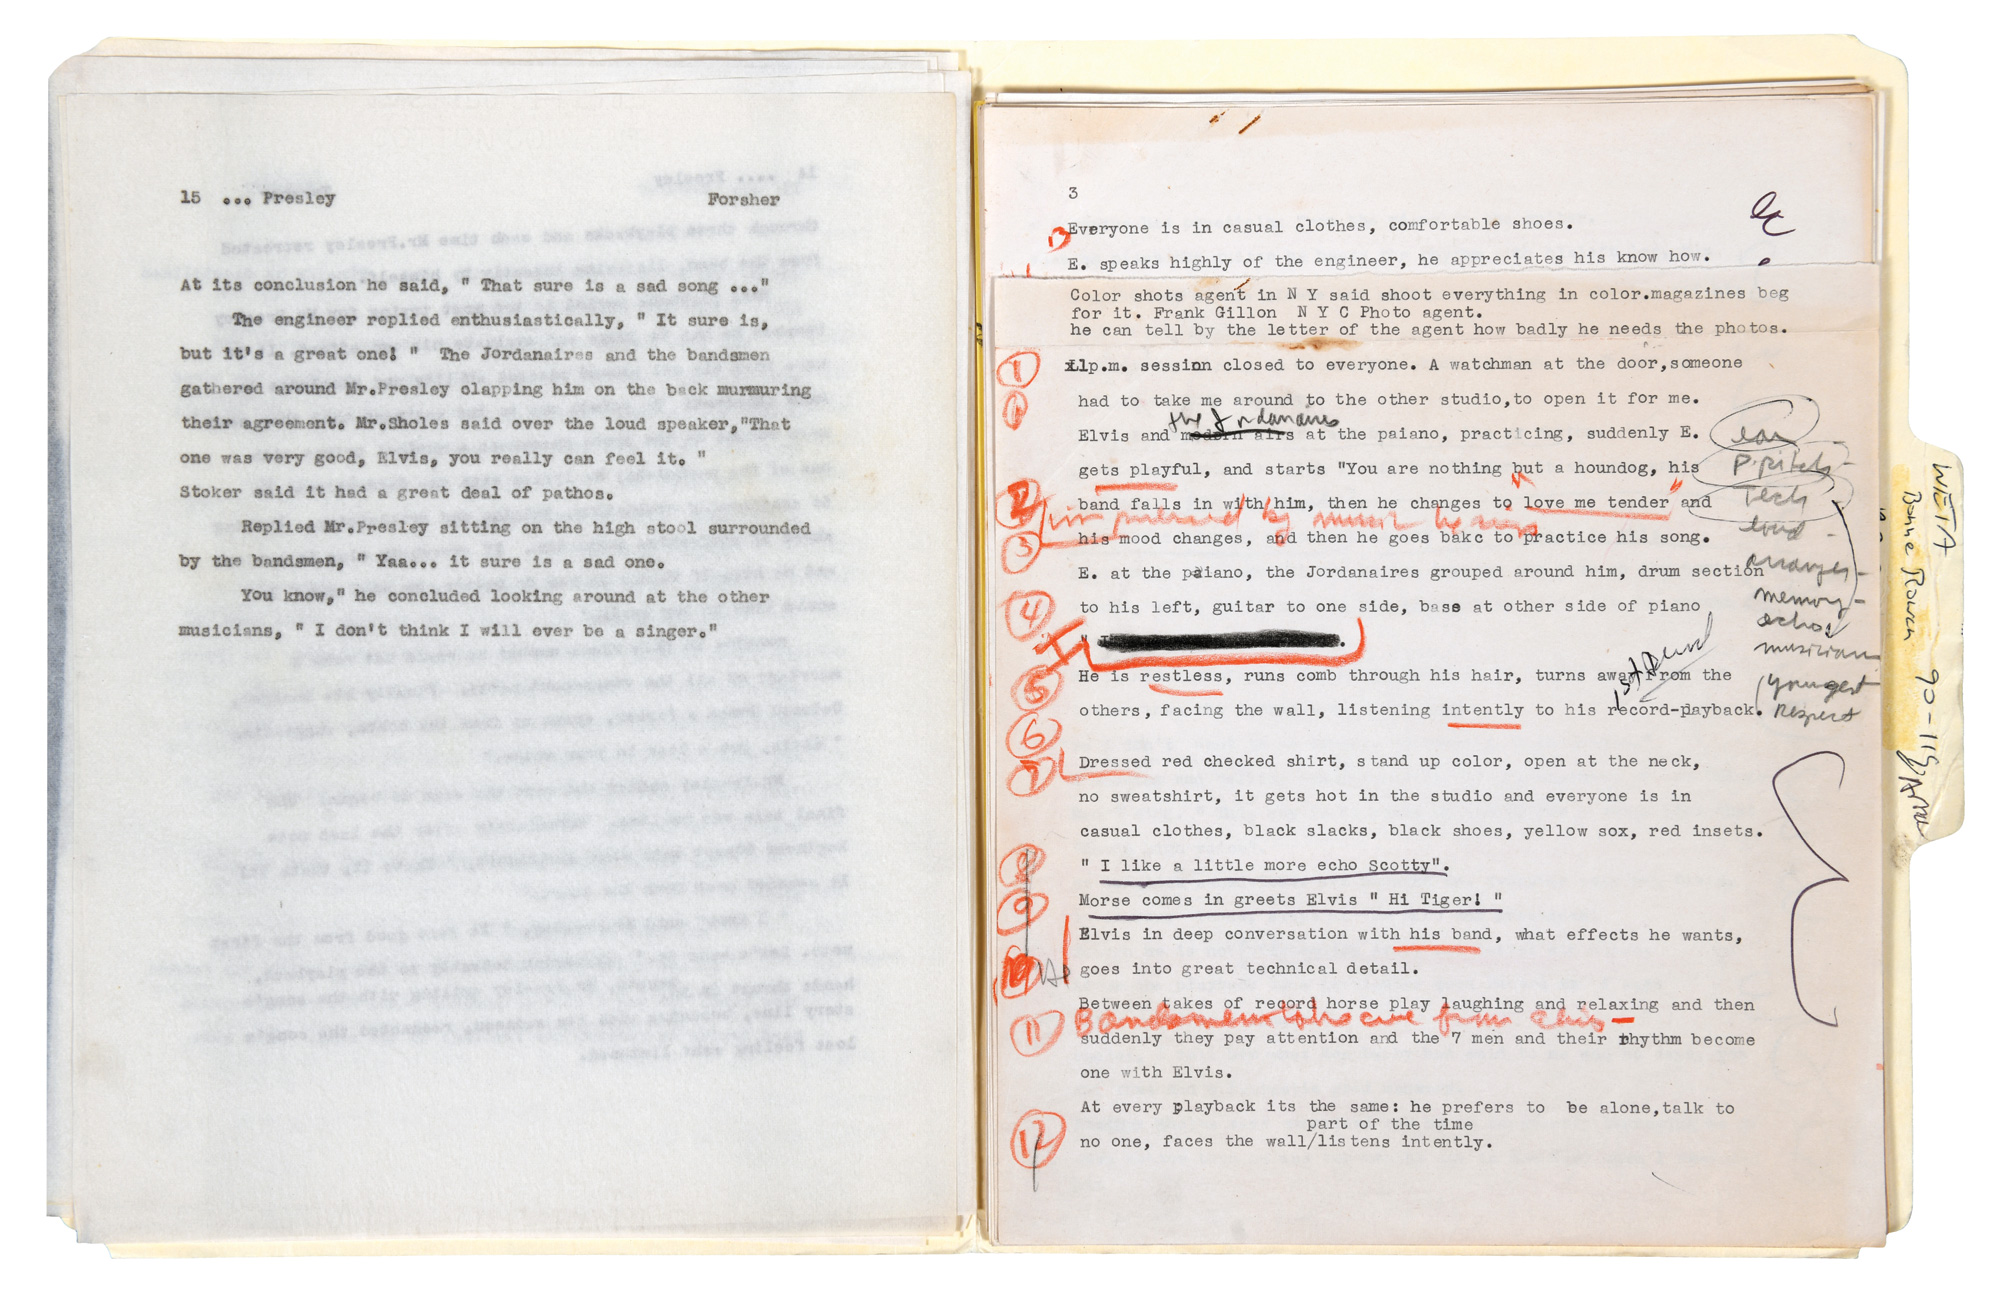 15 ... Presley Forsher
At its conclusion he said, " That sure is a sad song ..."
The engineer replied enthusiastically, " It sure is,
but it's a great one! " The Jordanaires and the bandsmen
gathered around Mr.Presley clapping him on the back murmuring
their agreement. Mr.Sholes said over the loud speaker,"That
one was very good, Elvis, you really can feel it. "
Stoker said it had a great deal of pathos.
Replied Mr.Presley sitting on the high stool surrounded
by the bandsmen, " Yaa... it sure is a sad one.
You know," he concluded looking around at the other
musicians, " I don't think I will ever be a singer."
3
Everyone is in casual clothes, comfortable shoes.
E. speaks highly of the engineer, he appreciates his know how.
Color shots agent in N Y said shoot everything in color.magazines beg
for it. Frank Gillon N Y C Photo agent.
he can tell by the letter of the agent how badly he needs the photos.
1 11p.m. session closed to everyone. A watchman at the door,someone
had to take me around to the other studio,to open it for me.
the Jordanaires
Elvis and modern airs at the paiano, practicing, suddenly E.
ear
gets playful, and starts "You are nothing but a houndog, his
pitch
2 band falls in with him, then he changes to love me tender" and
Tech
3 his mood changes, and then he goes bakc to practice his song.
E. at the paiano, the Jordanaires grouped around him, drum section
4 to his left, guitar to one side, base at other side of piano
memory
echo
musician
1st
5 He is restless, runs comb through his hair, turns away from the
youngest
others, facing the wall, listening intently to his record-playback.
Respect
6
7 Dressed red checked shirt, stand up color, open at the neck,
no sweatshirt, it gets hot in the studio and everyone is in
casual clothes, black slacks, black shoes, yellow sox, red insets.
8 " I like a little more echo Scotty".
9 Morse comes in greets Elvis " Hi Tiger! "
Elvis in deep conversation with his band, what effects he wants,
10 goes into great technical detail.
Between takes of record horse play laughing and relaxing and then
Bandsmen take cue from Elvis
11 suddenly they pay attention and the 7 men and their rhythm become
one with Elvis.
At every playback its the same: he prefers to be alone,talk to
part of the time
12 no one, faces the wall/listens intently.
WETA 90-119
Bonne Rowan